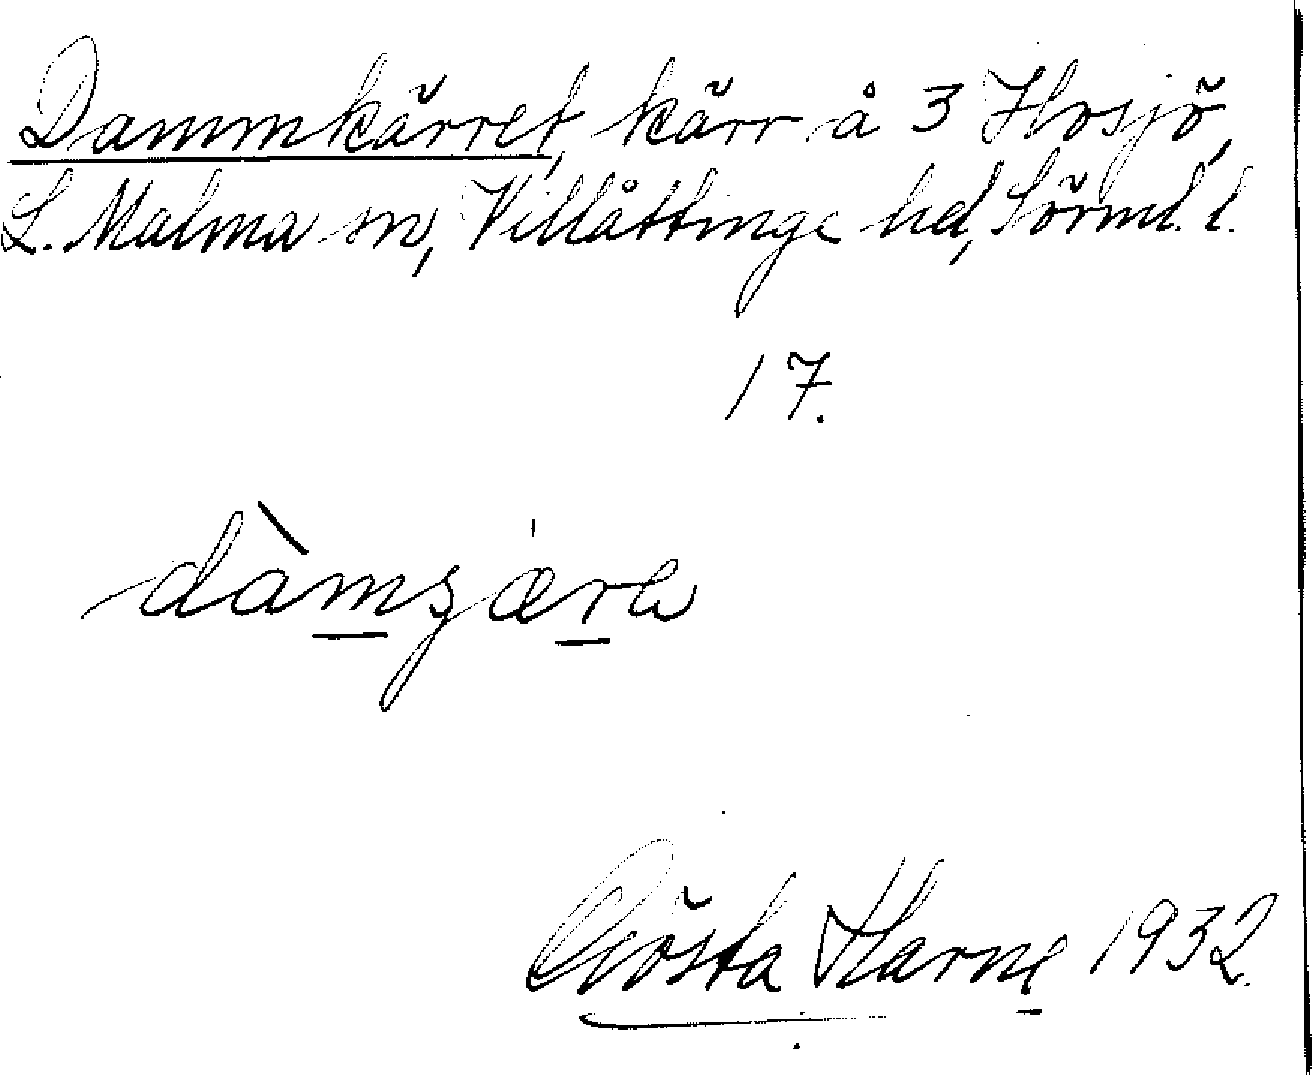 Dammkärret, kärr å 3 Hosjö,
L. Malma sn, Villåttinge hd, Sörml. l.
17.
dàmʒæra
Gösta Harne 1932.